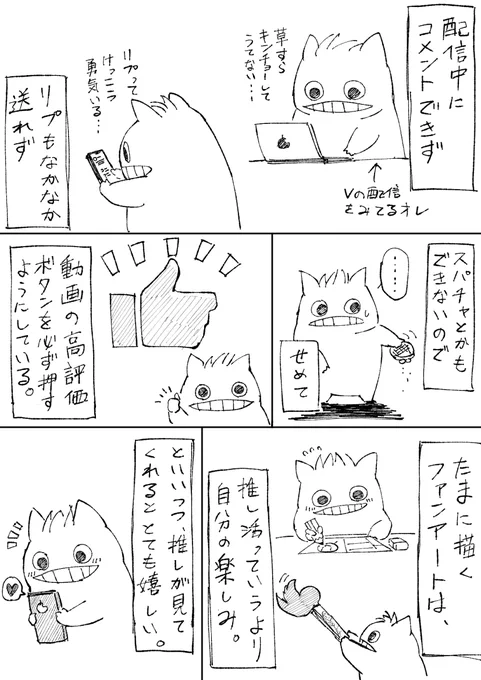 配信中に
コメントできず
草すら
キンチョーして
うてない…
Vの配信
をみてるオレ
リプって
けっこう
勇気いる…
リプもなかなか
送れず
スパチャとかも
できないので
……
せめて
動画の高評価
ボタンを必ず押す
ようにしている。
たまに描く
ファンアートは、
推し活っていうより
自分の楽しみ。
といいつつ、推しが見て
くれるととても嬉しい。